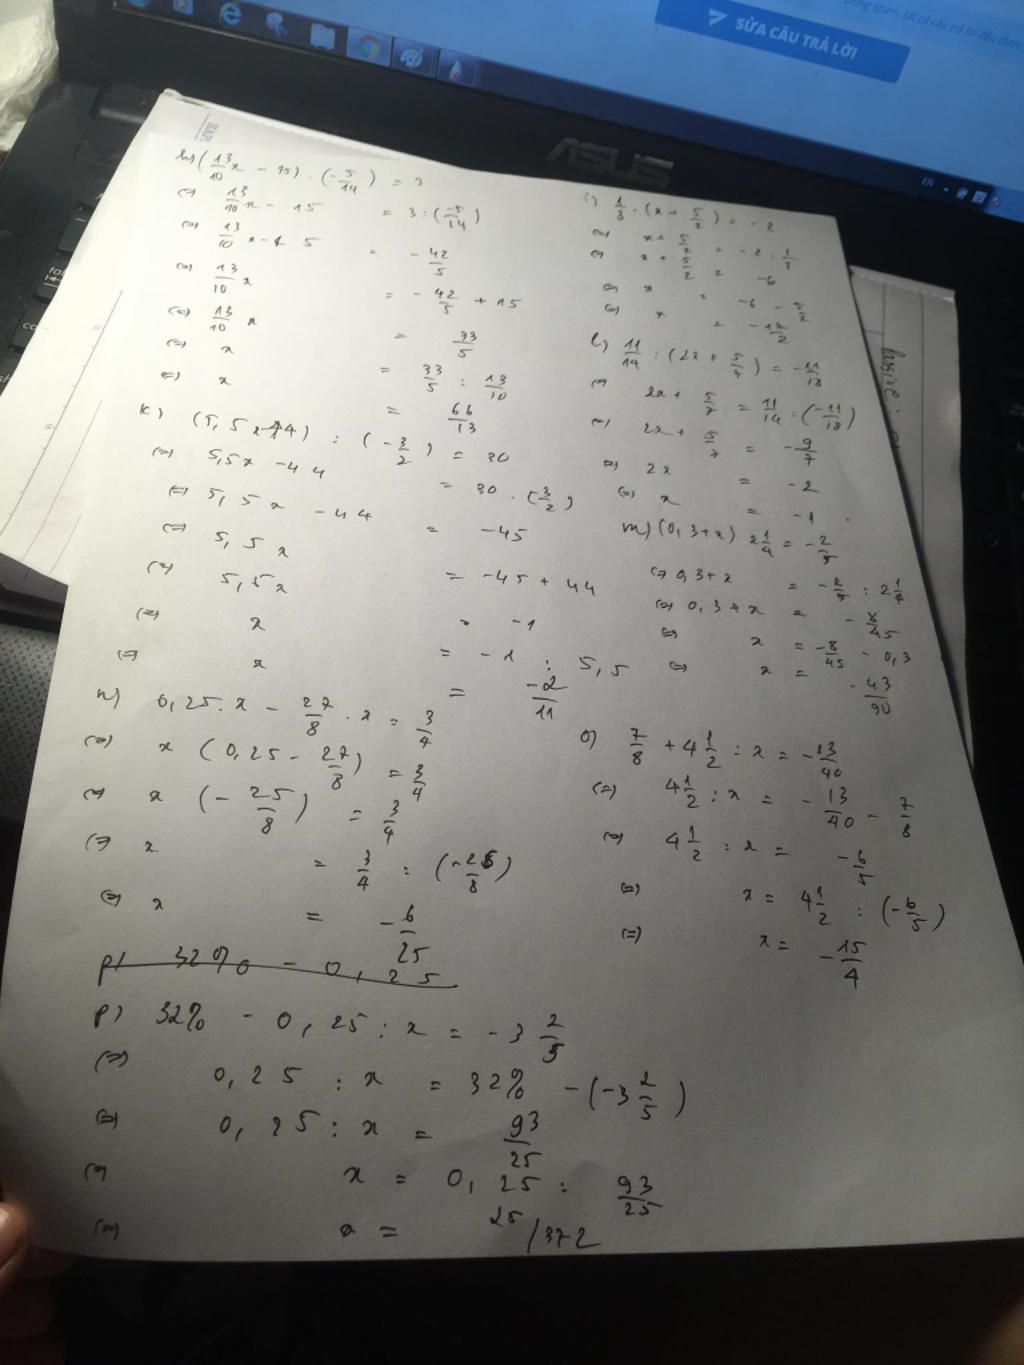 SỬA CÂU TRẢ LỜI
EN
ASUS
h) (13/10 x - 15) . (-5/14) = 3
(=) 13/10 x - 15 = 3 : (-5/14)
(=) 13/10 x - 15 = - 42/5
(=) 13/10 x = - 42/5 + 15
(=) 13/10 x = 33/5
(=) x = 33/5 : 13/10
(=) x = 66/13
i) 1/3 . (x + 5/2) = - 2
(=) x + 5/2 = - 2 : 1/3
(=) x + 5/2 = - 6
(=) x = - 6 - 5/2
(=) x = - 17/2
k) (5,5x - 44) : (- 3/2) = 30
(=) 5,5x - 44 = 30 . (-3/2)
(=) 5,5x - 44 = -45
(=) 5,5x = -45 + 44
(=) 5,5x = -1
(=) x = -1 : 5,5
(=) x = -2/11
l) 11/14 : (2x + 5/7) = - 11/18
(=) 2x + 5/7 = 11/14 : (-11/18)
(=) 2x + 5/7 = - 9/7
(=) 2x = - 2
(=) x = - 1
m) (0,3+x) 2 1/4 = - 2/5
(=) 0,3+x = - 2/5 : 2 1/4
(=) 0,3+x = - 8/45
(=) x = - 8/45 - 0,3
(=) x = - 43/90
n) 0,25.x - 27/8 . x = 3/4
(=) x (0,25 - 27/8) = 3/4
(=) x (- 25/8) = 3/4
(=) x = 3/4 : (-25/8)
(=) x = - 6/25
o) 7/8 + 4 1/2 : x = - 13/40
(=) 4 1/2 : x = - 13/40 - 7/8
(=) 4 1/2 : x = - 6/5
(=) x = 4 1/2 : (-6/5)
(=) x = - 15/4
p) 32% - 0,25
p) 32% - 0,25 : x = - 3 2/5
(=) 0,25 : x = 32% - (-3 2/5)
(=) 0,25 : x = 93/25
(=) x = 0,25 : 93/25
(=) x = 25/372